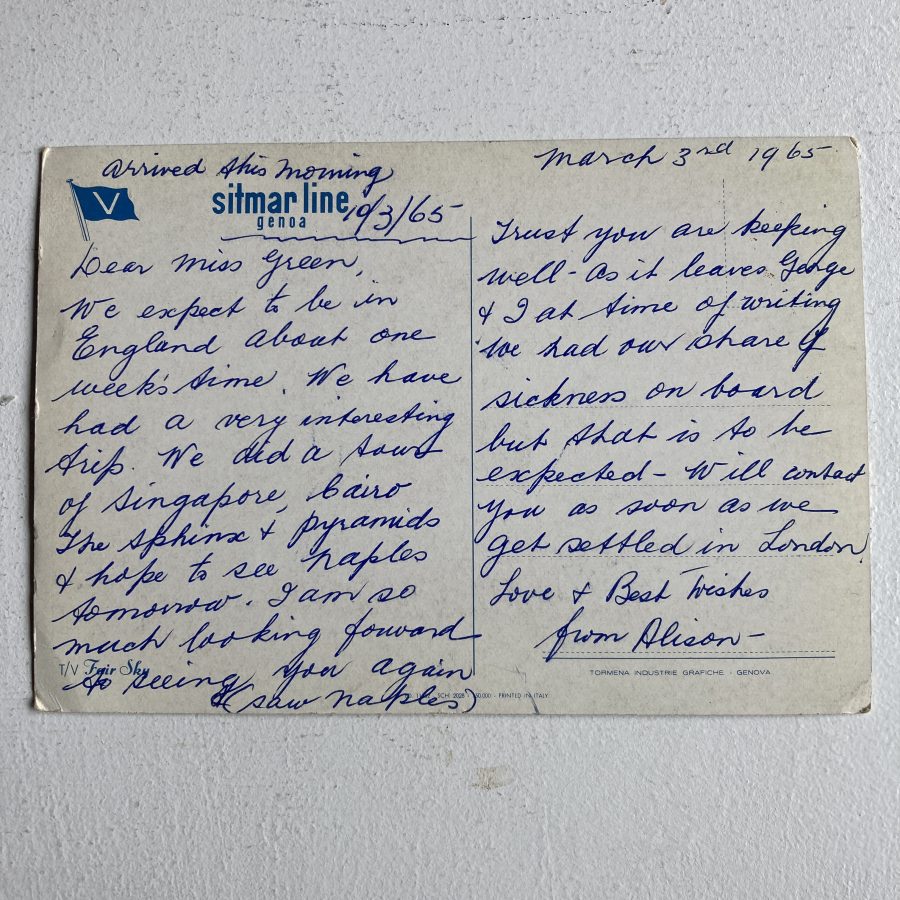 arrived this morning
10/3/65
sitmar line
genoa
V
Dear Miss Green,
We expect to be in
England about one
week's time. We have
had a very interesting
trip. We did a tour
of Singapore, Cairo
The Sphinx & pyramids
& hope to see Naples
tomorrow. I am so
much looking forward
to seeing you again
(saw Naples)
T/V Fair Sky
March 3rd 1965
Trust you are keeping
well - As it leaves George
& I at time of writing
we had our share of
sickness on board
but that is to be
expected - Will contact
you as soon as we
get settled in London
Love & Best Wishes
from Alison -
TORMENA INDUSTRIE GRAFICHE - GENOVA
SCH. 2028 - PRINTED IN ITALY